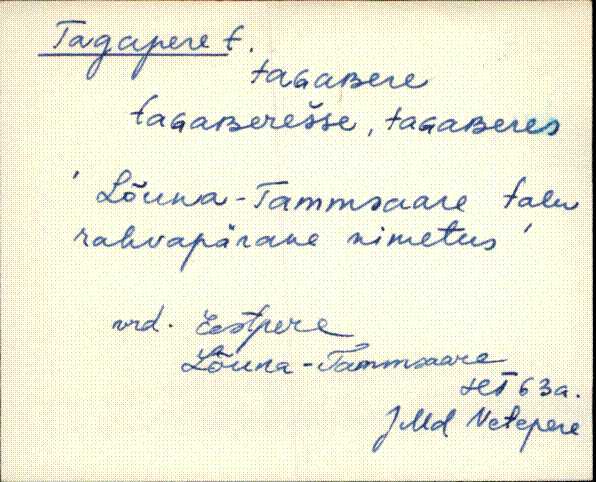 Tagapere t.
taGaBere
taGaBerešse, taGaBeres
' Lõuna-Tammsaare talu
rahvapärane nimetus '
vrd. Eestpere
Lõuna-Tammsaare
63a.
JMd Vetepere